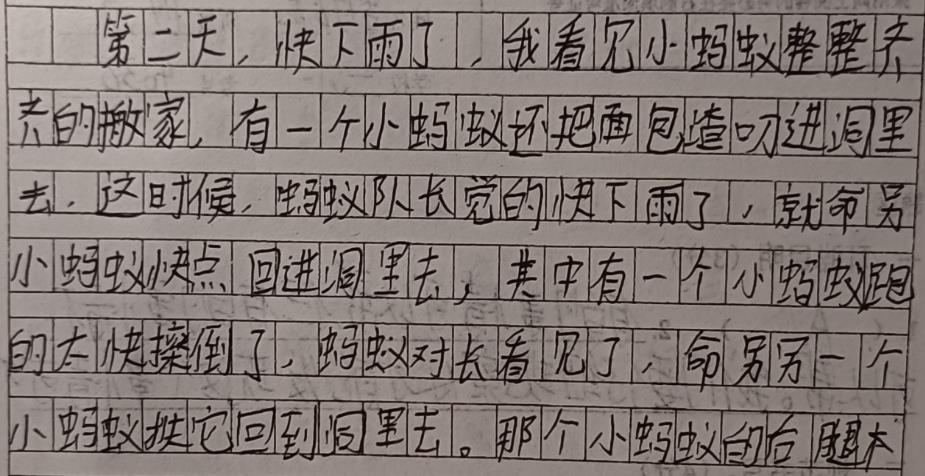 第二天，快下雨了，我看见小蚂蚁整整齐
齐的搬家，有一个小蚂蚁还把面包渣叨进洞里
去，这时候，蚂蚁队长觉的快下雨了，就命另
小蚂蚁快点回进洞里去，其中有一个小蚂蚁跑
的太快摔倒了，蚂蚁对长看见了，命另另一个
小蚂蚁扶它回到洞里去。那个小蚂蚁的右腿本